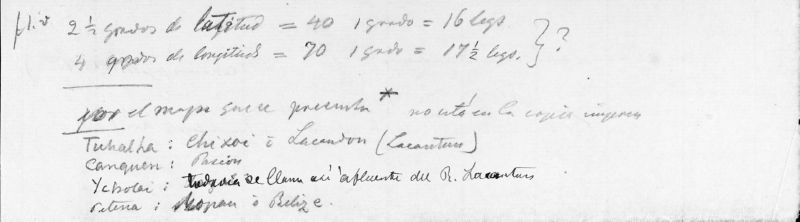 fl. v 2 ½ grados de latitud = 40 1 grado = 16 legs. } ?
4 grados de longitud = 70 1 grado = 17 ½ legs.
por el mapa que se presenta * no está en la copia impresa
Tuhalha : Chixoi ó Lacandon (Lacantun)
Canquen : Pasión
Ycbolai : todavía se llama así afluente del R. Lacantun
Petena : Mopan ó Belize.